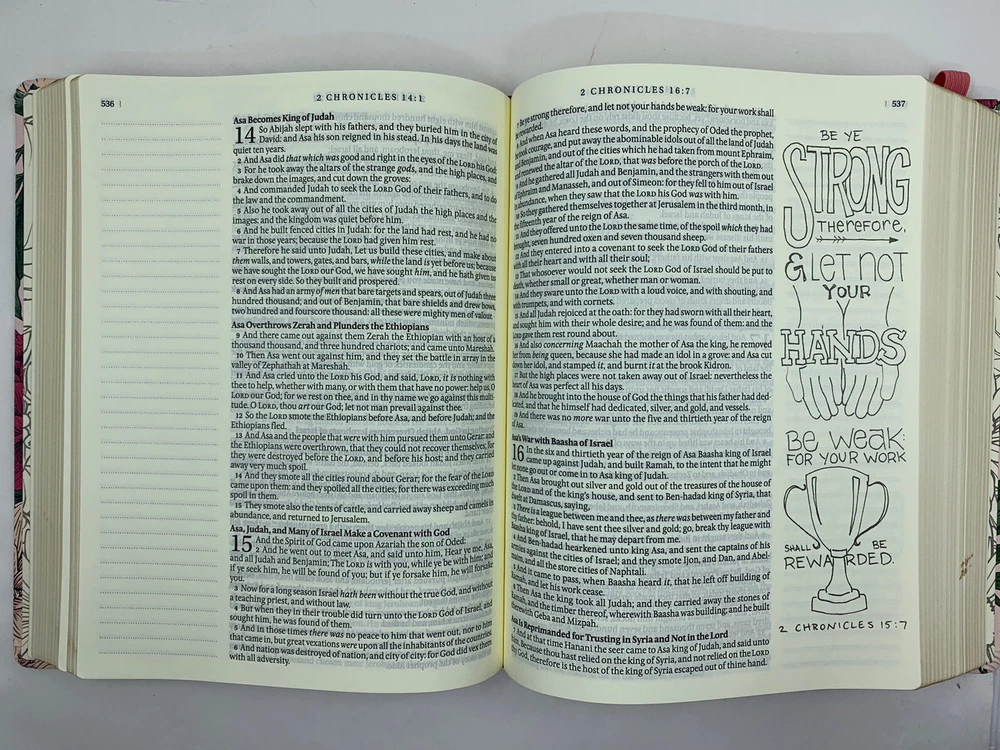 536
2 CHRONICLES 14:1
Asa Becomes King of Judah
14 So Abijah slept with his fathers, and they buried him in the city of
David: and Asa his son reigned in his stead. In his days the land was
quiet ten years.
2 And Asa did that which was good and right in the eyes of the LORD his God:
3 For he took away the altars of the strange gods, and the high places, and
brake down the images, and cut down the groves:
4 And commanded Judah to seek the LORD God of their fathers, and to do
the law and the commandment.
5 Also he took away out of all the cities of Judah the high places and the
images: and the kingdom was quiet before him.
6 And he built fenced cities in Judah: for the land had rest, and he had no
war in those years; because the LORD had given him rest.
7 Therefore he said unto Judah, Let us build these cities, and make about
them walls, and towers, gates, and bars, while the land is yet before us; because
we have sought the LORD our God, we have sought him, and he hath given us
rest on every side. So they built and prospered.
8 And Asa had an army of men that bare targets and spears, out of Judah three
hundred thousand; and out of Benjamin, that bare shields and drew bows,
two hundred and fourscore thousand: all these were mighty men of valour.
Asa Overthrows Zerah and Plunders the Ethiopians
9 And there came out against them Zerah the Ethiopian with an host of a
thousand thousand, and three hundred chariots; and came unto Mareshah.
10 Then Asa went out against him, and they set the battle in array in the
valley of Zephathah at Mareshah.
11 And Asa cried unto the LORD his God, and said, LORD, it is nothing with
thee to help, whether with many, or with them that have no power: help us, O
LORD our God; for we rest on thee, and in thy name we go against this multi-
tude. O LORD, thou art our God; let not man prevail against thee.
12 So the LORD smote the Ethiopians before Asa, and before Judah; and the
Ethiopians fled.
13 And Asa and the people that were with him pursued them unto Gerar: and
the Ethiopians were overthrown, that they could not recover themselves; for
they were destroyed before the LORD, and before his host; and they carried
away very much spoil.
14 And they smote all the cities round about Gerar; for the fear of the LORD
came upon them: and they spoiled all the cities; for there was exceeding much
spoil in them.
15 They smote also the tents of cattle, and carried away sheep and camels in
abundance, and returned to Jerusalem.
Asa, Judah, and Many of Israel Make a Covenant with God
15 And the Spirit of God came upon Azariah the son of Oded:
2 And he went out to meet Asa, and said unto him, Hear ye me, Asa,
and all Judah and Benjamin; The LORD is with you, while ye be with him; and
if ye seek him, he will be found of you; but if ye forsake him, he will forsake
you.
3 Now for a long season Israel hath been without the true God, and without
a teaching priest, and without law.
4 But when they in their trouble did turn unto the LORD God of Israel, and
sought him, he was found of them.
5 And in those times there was no peace to him that went out, nor to him
that came in, but great vexations were upon all the inhabitants of the countries.
6 And nation was destroyed of nation, and city of city: for God did vex them
with all adversity.
2 CHRONICLES 16:7
537
Be ye strong therefore, and let not your hands be weak: for your work shall
be rewarded.
And when Asa heard these words, and the prophecy of Oded the prophet,
he took courage, and put away the abominable idols out of all the land of Judah
and Benjamin, and out of the cities which he had taken from mount Ephraim,
and renewed the altar of the LORD, that was before the porch of the LORD.
And he gathered all Judah and Benjamin, and the strangers with them out
of Ephraim and Manasseh, and out of Simeon: for they fell to him out of Israel
in abundance, when they saw that the LORD his God was with him.
10 So they gathered themselves together at Jerusalem in the third month, in
the fifteenth year of the reign of Asa.
And they offered unto the LORD the same time, of the spoil which they had
brought, seven hundred oxen and seven thousand sheep.
And they entered into a covenant to seek the LORD God of their fathers
with all their heart and with all their soul;
13 That whosoever would not seek the LORD God of Israel should be put to
death, whether small or great, whether man or woman.
14 And they sware unto the LORD with a loud voice, and with shouting, and
with trumpets, and with cornets.
15 And all Judah rejoiced at the oath: for they had sworn with all their heart,
and sought him with their whole desire; and he was found of them: and the
LORD gave them rest round about.
16 And also concerning Maachah the mother of Asa the king, he removed
her from being queen, because she had made an idol in a grove: and Asa cut
down her idol, and stamped it, and burnt it at the brook Kidron.
17 But the high places were not taken away out of Israel: nevertheless the
heart of Asa was perfect all his days.
18 And he brought into the house of God the things that his father had ded-
icated, and that he himself had dedicated, silver, and gold, and vessels.
19 And there was no more war unto the five and thirtieth year of the reign
of Asa.
Asa's War with Baasha of Israel
16 In the six and thirtieth year of the reign of Asa Baasha king of Israel
came up against Judah, and built Ramah, to the intent that he might
let none go out or come in to Asa king of Judah.
2 Then Asa brought out silver and gold out of the treasures of the house of
the LORD and of the king's house, and sent to Ben-hadad king of Syria, that
dwelt at Damascus, saying,
3 There is a league between me and thee, as there was between my father and
thy father: behold, I have sent thee silver and gold; go, break thy league with
Baasha king of Israel, that he may depart from me.
4 And Ben-hadad hearkened unto king Asa, and sent the captains of his
armies against the cities of Israel; and they smote Ijon, and Dan, and Abel-
maim, and all the store cities of Naphtali.
5 And it came to pass, when Baasha heard it, that he left off building of
Ramah, and let his work cease.
6 Then Asa the king took all Judah; and they carried away the stones of
Ramah, and the timber thereof, wherewith Baasha was building; and he built
therewith Geba and Mizpah.
Asa Is Reprimanded for Trusting in Syria and Not in the Lord
7 And at that time Hanani the seer came to Asa king of Judah, and said unto
him, Because thou hast relied on the king of Syria, and not relied on the LORD
thy God, therefore is the host of the king of Syria escaped out of thine hand.
BE YE
STRONG
THEREFORE,
& LET NOT
YOUR
HANDS
BE WEAK:
FOR YOUR WORK
SHALL BE
REWARDED.
2 CHRONICLES 15:7